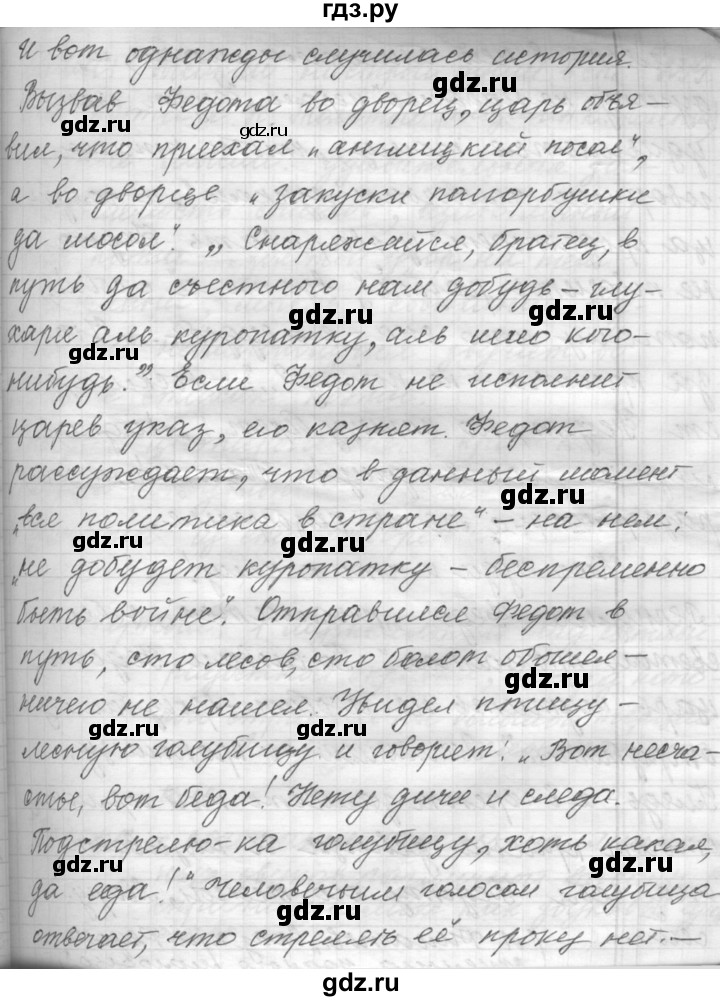 гдз.ру
И вот однажды случилась история.
gdz.ru
Вызвав Федота во дворец, царь объя-
gdz.ru
gdz.ru
вил, что приехал „английцкий посол",
gdz.ru
gdz.ru
а во дворце „закуски полгорбушки
да мосол". „Снаряжайся, братец, в
gdz.ru
путь да съестного нам добудь – глу-
gdz.ru
gdz.ru
харя аль куропатку, аль ишо кого-
gdz.ru
нибудь." Если Федот не исполнит
царев указ, его казнят. Федот
рассуждает, что в данный момент
gdz.ru
„вся политика в стране" – на нем:
gdz.ru
gdz.ru
„не добудет куропатку – беспременно
быть войне". Отправился Федот в
путь, сто лесов, сто болот обошел –
gdz.ru
ничего не нашел. Увидел птицу –
gdz.ru
gdz.ru
лесную голубицу и говорит: „Вот несча-
стье, вот беда! Нету дичи и следа.
Подстрелю-ка голубицу, хоть какая,
gdz.ru
gdz.ru
да еда!" Человечьим голосом голубица
gdz.ru
отвечает, что стрелять её проку нет. –
gdz.ru